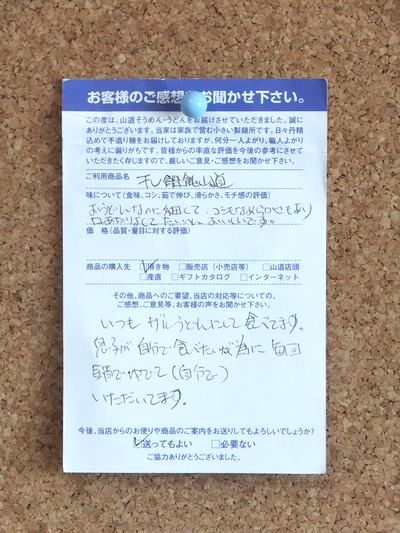 お客様のご感想をお聞かせ下さい。
この度は、山道そうめん・うどんをお届けさせていただきました。誠に
ありがとうございます。当家は家族で営む小さい製麺所です。日々丹精
込めて手造り麺をお届けしておりますが、何分一人よがり、職人よがり
の考えに偏りがちです。皆様からの率直な評価を今後の参考にさせて
いただきたく存じますので、厳しいご意見・ご感想をお聞かせ下さい。
ご利用商品名 干し饂飩山道
味について(食味、コシ、茹で伸び、滑らかさ、モチ感の評価)
おうどんなのに細くて、コシもなめらかさもあり
口あたりよくて とおいしいです。
価 格(品質・量目に対する評価)
商品の購入先 ☑頂き物 □販売店(小売店等) □山道店頭
□産直 □ギフトカタログ □インターネット
その他、商品へのご要望、当店の対応等についての、
ご感想、ご意見等、お客様の声をお聞かせ下さい。
いつも ザルうどんにして 食べてます。
息子が 自分で 食べたい為に 毎回
鍋でゆでて(自分で)
いただいてます。
今後、当店からのお便りや商品のご案内をお送りしてもよろしいでしょうか?
☑送ってもよい □必要ない
ご協力ありがとうございました。